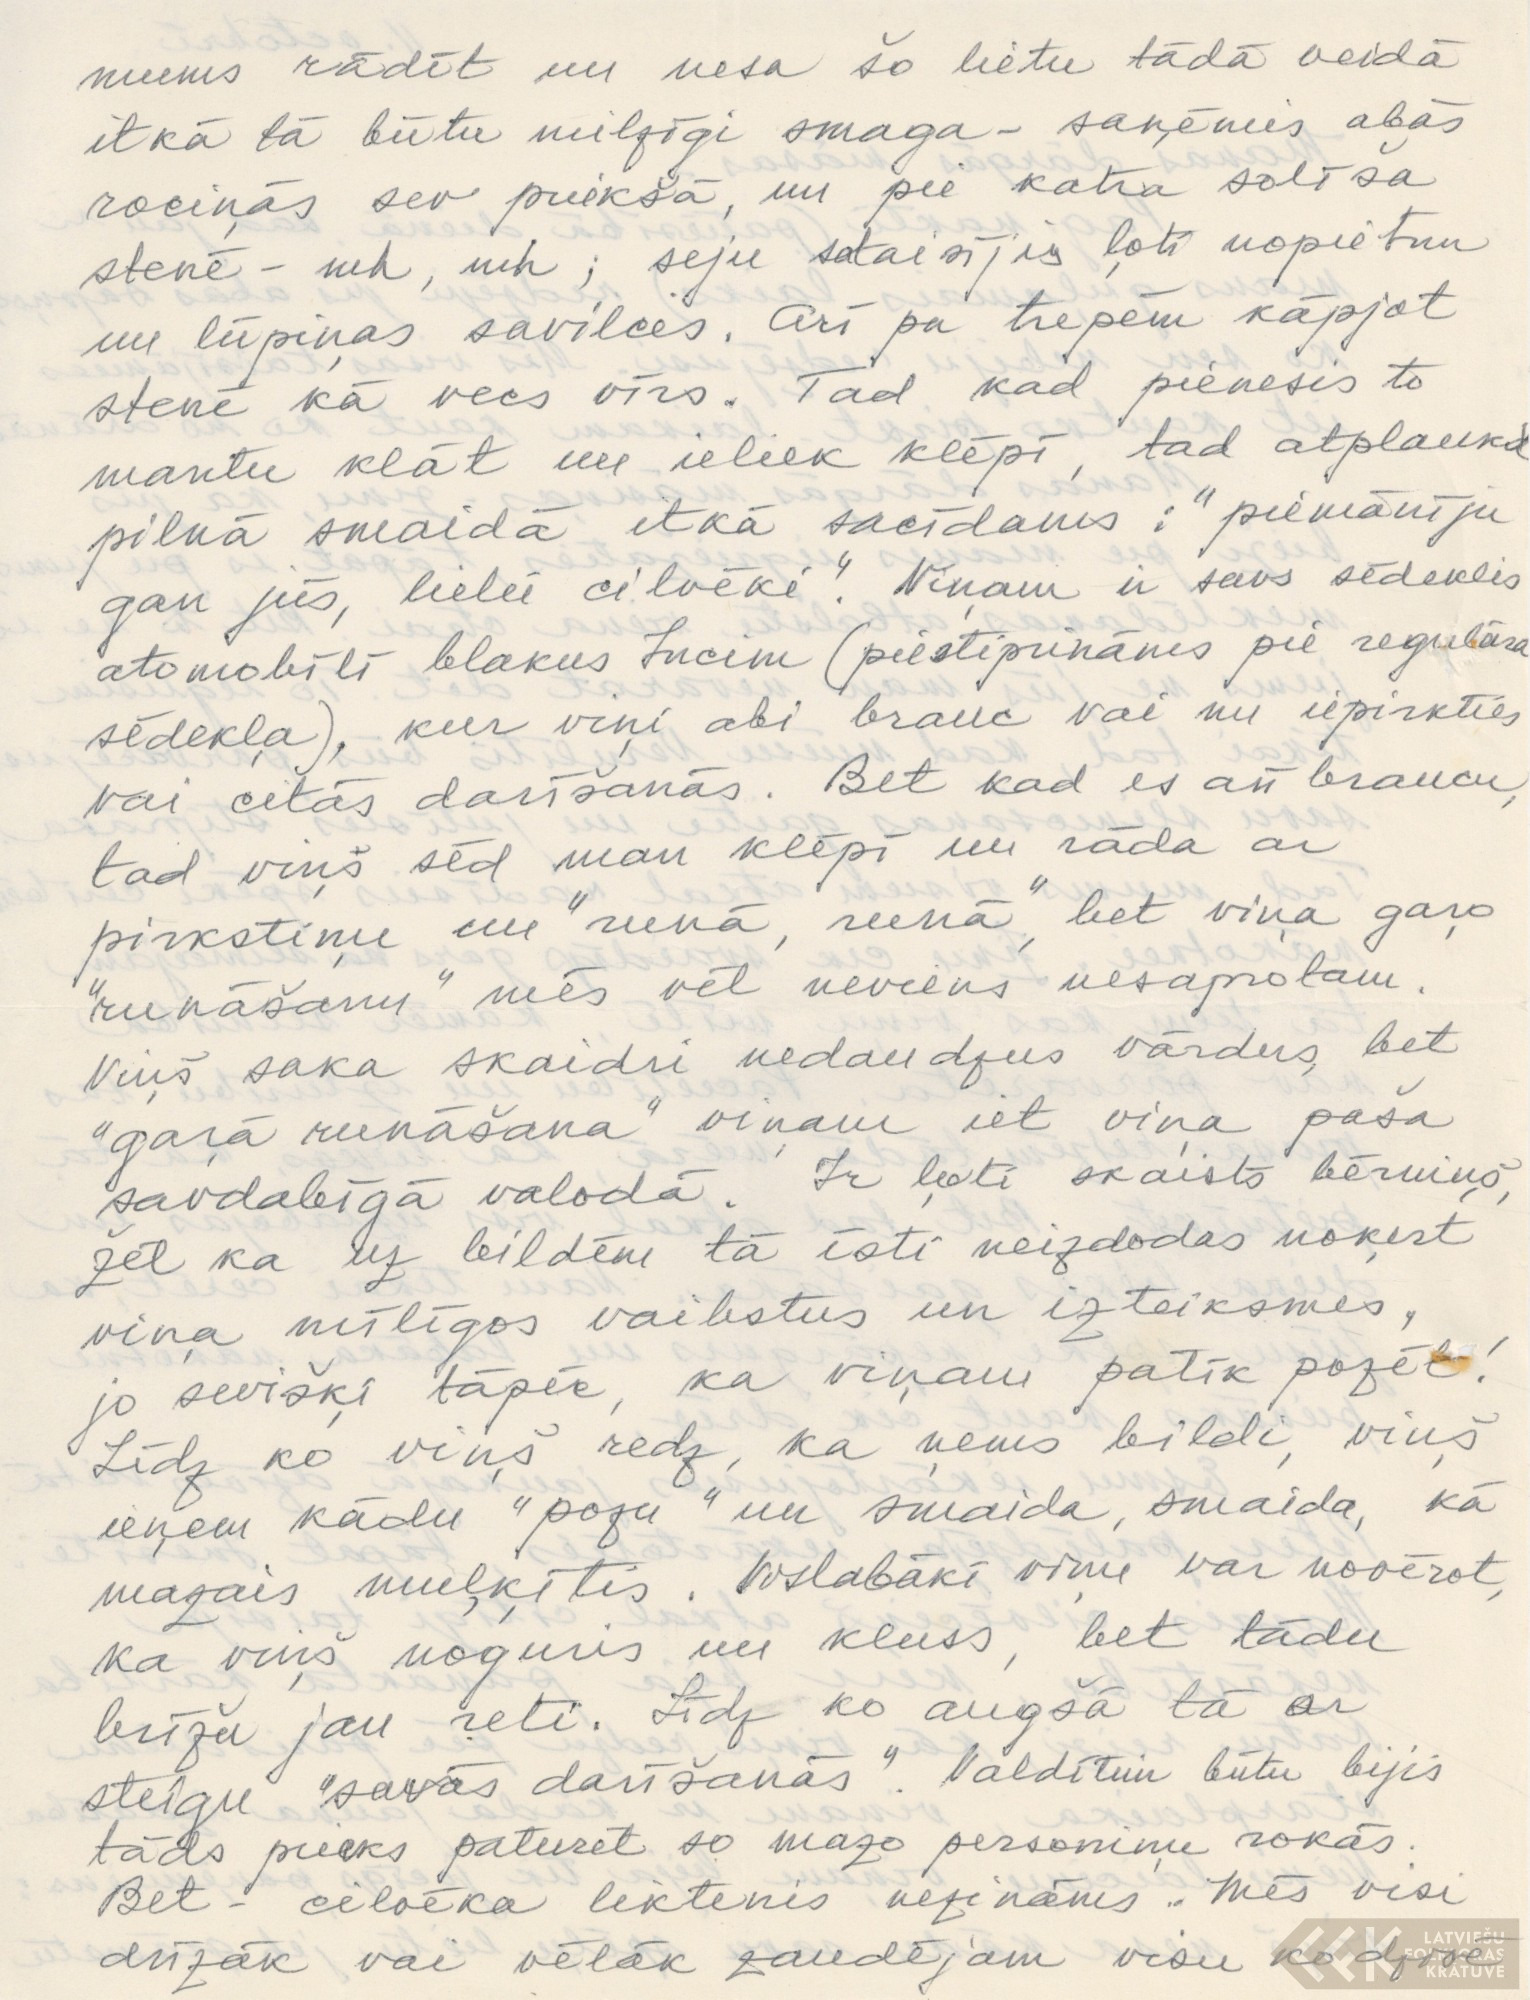 mums rādīt un nesa šo lietu tādā veidā
itkā tā būtu milzīgi smaga - saņēmis abās
rociņās sev priekšā, un pie katra solīša
stenē - mh, mh ; seju sataisījis ļoti nopietnu
un lūpiņas savilcis. Arī pa trepēm kāpjot
stenē kā vecs vīrs. Tad kad pienesis to
mantu klāt un ieliek klēpī, tad atplaukst
pilnā smaidā itkā sacīdams : "piemānīju
gan jūs, lielie cilvēki". Viņam ir savs sēdeklis
atomobīlī blakus Lucim (piestiprināms pie regulāra
sēdekļa), kur viņi abi brauc vai nu iepirkties
vai citās darīšanās. Bet kad es arī braucu,
tad viņš sēd man klēpī un rāda ar
pirkstiņu un "runā, runā", bet viņa gaŗo
"runāšanu" mēs vēl neviens nesaprotam.
Viņš saka skaidri nedaudzus vārdus, bet
"gaŗā runāšana" viņam iet viņa paša
savdabīgā valodā. Ir ļoti skaists bērniņš,
žēl ka uz bildēm tā īsti neizdodas noķert
viņa mīlīgos vaibstus un izteiksmes,
jo sevišķi tāpēc, ka viņam patīk pozēt!
Līdz ko viņš redz, ka ņems bildi, viņš
ieņem kādu "pozu" un smaida, smaida, kā
mazais muļķītis. Vislabāki viņu var novērot,
ka viņš noguris un kluss, bet tādu
brīžu jau reti. Līdz ko augšā tā ar
steigu "savās darīšanās". Valdītim būtu bijis
tāds prieks paturēt so mazo personiņu rokās.
Bet - cilvēka liktenis nezināms. Mēs visi
drīzāk vai vēlāk zaudējam visu ko
LATVIEŠU
FOLKLORAS
KRĀTUVE